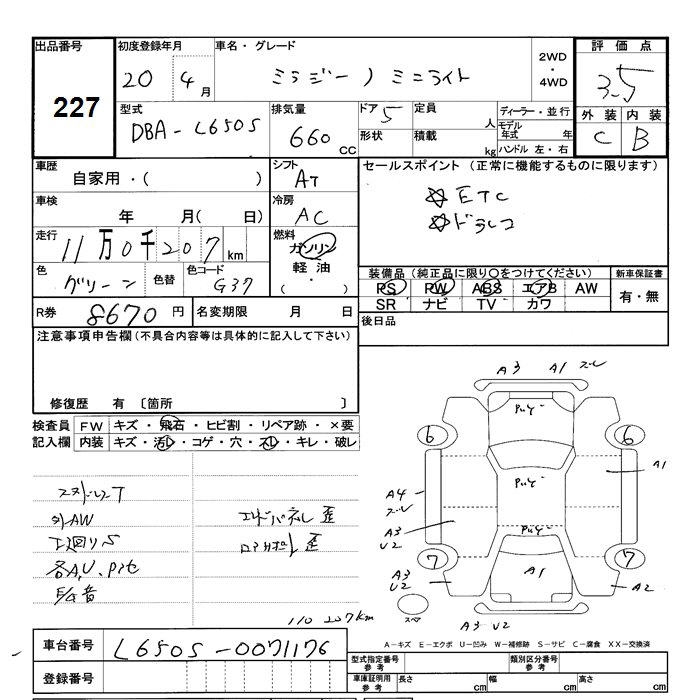 出品番号 初度登録年月 車名・グレード 評価点
227 20年 4月 ミラジーノ ミニライト 2WD・4WD 3.5
型式 DBA-L650S 排気量 660cc ドア 5 定員 人 ディーラー・並行
形状 積載 kg モデル年式 年
ハンドル 左・右
外装 C 内装 B
車歴 自家用・( )
シフト AT
セールスポイント (正常に機能するものに限ります)
☆ETC
☆ドラレコ
車検 年 月( 日)
冷房 AC
走行 11万0千207km
燃料 ガソリン
軽油
( ・ )
色 グリーン 色替 色コード G37
装備品 (純正品に限り○をつけてください) 新車保証書
PS PW ABS エアB AW 有・無
SR ナビ TV カワ
R券 8670円 名変期限 月 日
後日品
注意事項申告欄(不具合内容等は具体的に記入して下さい)
修復歴 有 〔箇所 〕
検査員 FW キズ・飛石・ヒビ割・リペア跡・×要
記入欄 内装 キズ・汚レ・コゲ・穴・スレ・キレ・破レ
外AW
エンドパネル 歪
各A,U、Pテセ
110207km
A3 A1 スレ
Pルビ
6 6
A1
A4 スレ
Pルビ
A3 U2
Pルビ
7 7
A3 U2
A1
A2
スペア
A3 U2
A-キズ E-エクボ U-凹み W-補修跡 S-サビ C-腐食 XX-交換済
車台番号 L650S-0071176
登録番号
型式指定番号 参考 類別区分番号 参考
車庫証明用 参考 長さ cm 幅 cm 高さ cm